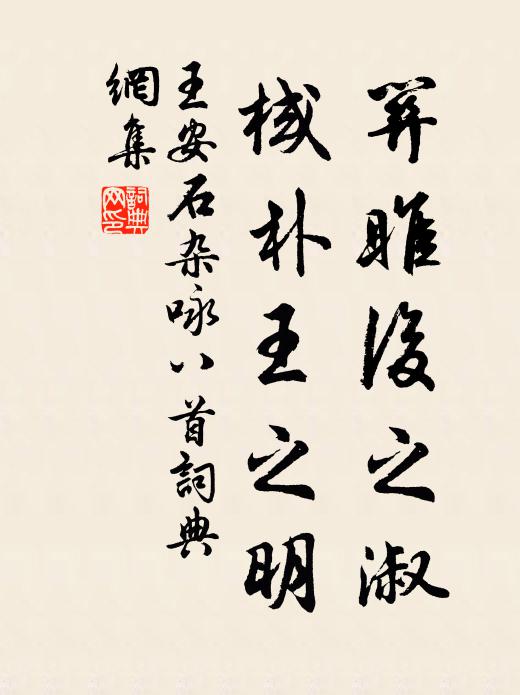 关雎後之淑
棫朴王之明
王安石杂咏八首詞典
網集
詞典网印